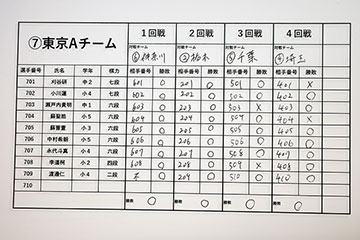 ⑦東京Aチーム 1回戦 2回戦 3回戦 4回戦
対戦チーム 対戦チーム 対戦チーム 対戦チーム
⑥神奈川 ②栃木 ⑤千葉 ④埼玉
選手番号 氏名 学年 棋力 相手番号 勝敗 相手番号 勝敗 相手番号 勝敗 相手番号 勝敗
701 刈谷研 中2 七段 601 ○ 201 ○ 501 ○ 401 ×
702 小川蓮 小4 七段 602 ○ 202 ○ 502 ○ 402 ○
703 瀬戸内貴明 中1 六段 603 ○ 203 ○ 503 × 403 ○
704 小4 六段 604 ○ 204 ○ 504 ○ 404 ×
705 小3 六段 605 ○ 205 ○ 505 ○ 405 ○
706 中村希朝 小5 六段 606 ○ 206 ○ 506 ○ 406 ○
707 永代斗真 小4 六段 607 ○ 207 ○ 508 ○ 407 ○
708 李道柯 小2 四段 608 ○ 208 ○ 509 × 408 ○
709 渡邉仁 小4 二段 不 ○ 209 ○ 510 ○ 410 ○
710
勝敗 ○ 勝敗 ○ 勝敗 ○ 勝敗 ○